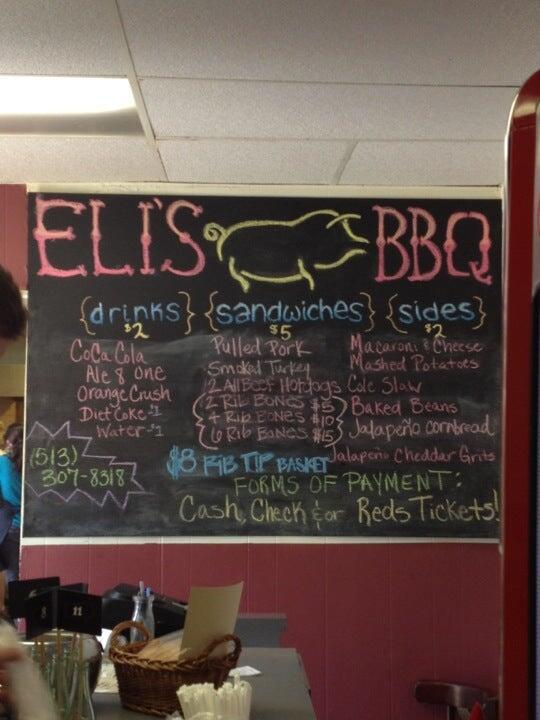 ELI'S BBQ
{drinks}
$2
CoCa Cola
Ale 8 One
Orange Crush
Diet Coke $1
Water $1
(513)
307-8318
{sandwiches}
$5
Pulled Pork
Smoked Turkey
2 All Beef Hot dogs
2 Rib Bones $5
4 Rib Bones $10
6 Rib Bones $15
$8 Rib Tip Basket
{sides}
$2
Macaroni & Cheese
Mashed Potatoes
Cole Slaw
Baked Beans
Jalapeño cornbread
Jalapeño Cheddar Grits
FORMS OF PAYMENT:
Cash, Check & or Reds Tickets!
8
11